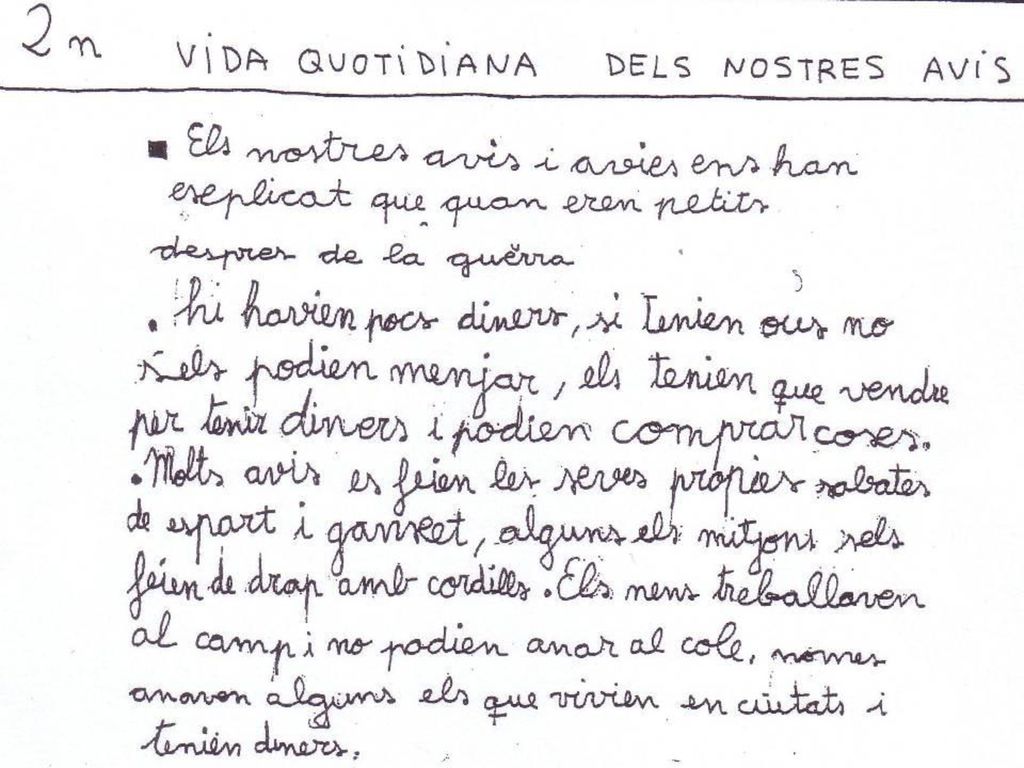 2n VIDA QUOTIDIANA DELS NOSTRES AVIS
▪ Els nostres avis i avies ens han
explicat que quan eren petits
despres de la guerra
. hi havien pocs diners, si tenien ous no
s'els podien menjar, els tenien que vendre
per tenir diners i podien comprar coses.
. Molts avis es feien les seves propies sabates
de espart i ganxet, alguns els mitjons sels
feien de drap amb cordills. Els nens treballaven
al camp i no podien anar al cole, nomes
anaven alguns els que vivien en ciutats i
tenien diners.